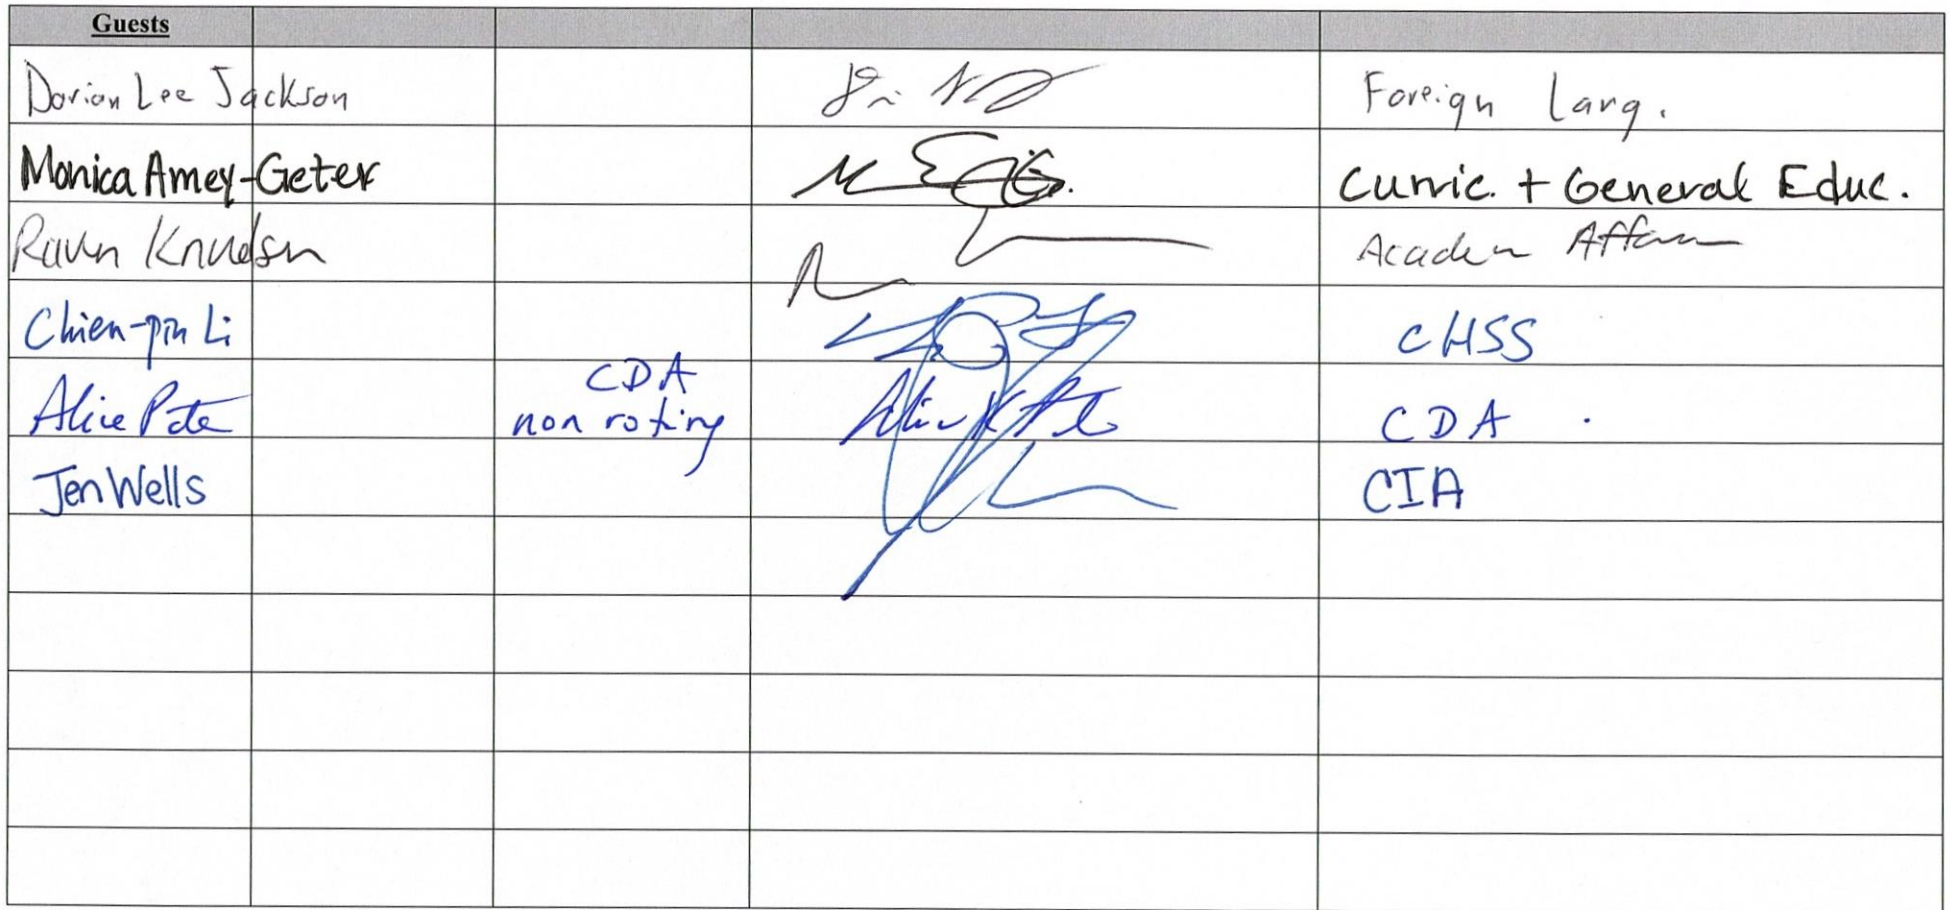 Guests
Dorian Lee Jackson Foreign Lang.
Monica Amey-Geter Curric. + General Educ.
Raven Knudsen Academ Affairs
Chien-pin Li CHSS
Alice Pate CDA non voting Alice K Pate CDA
Jen Wells CIA